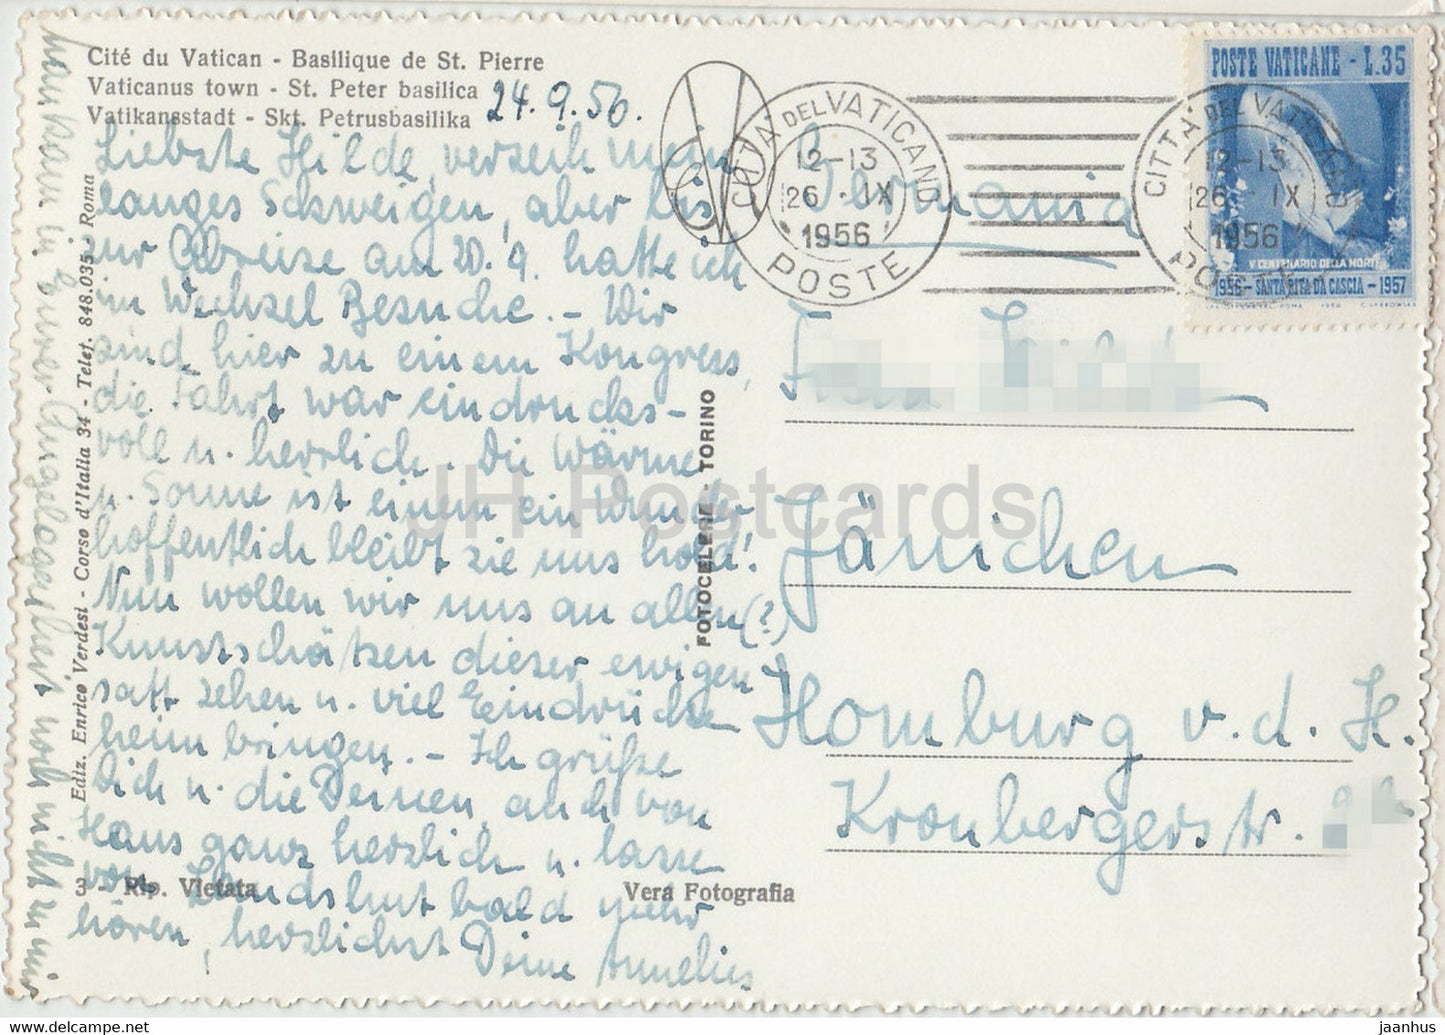 Cité du Vatican - Basilique de St. Pierre
Vaticanus town - St. Peter basilica
Vatikansstadt - Skt. Petrusbasilika
24.9.56.
Liebste Hilde, verzeih mein
langes Schweigen, aber bis
zur Abreise am 20.9. hatte ich
im Wechsel Besuche. - Wir
sind hier zu einem Kongress,
die Fahrt war eindrucks-
voll u. herrlich. Die Wärme
u. Sonne ist einem ein Wunder
hoffentlich bleibt sie uns hold!
Nun wollen wir uns an allen (?)
Kunstschätzen dieser ewigen
satt sehen u. viel Eindrücke
heim bringen. - Ich grüße
Dich u. die Deinen, auch von
Hans ganz herzlich u. lasse
von Landshut bald mehr
hören, herzlichst Deine Annelies
man kam in Eurer Angelegenheit noch nicht zu mir
Ediz. Enrico Verdesi - Corso d'Italia 34 - Telef. 848.035 - Roma
3 - Rip. Vietata
Vera Fotografia
FOTOCELERE - TORINO
JH Postcards
CITTÀ DEL VATICANO
12-13
26 . IX
1956
POSTE
CITTÀ DEL VATICANO
12-13
26 IX
1956
POSTE
POSTE VATICANE - L.35
V CENTENARIO DELLA MORTE
1956 - SANTA RITA DA CASCIA - 1957
Germania
Frau
Jänichen
Homburg v. d. H.
Kronbergerstr.
jaanhus